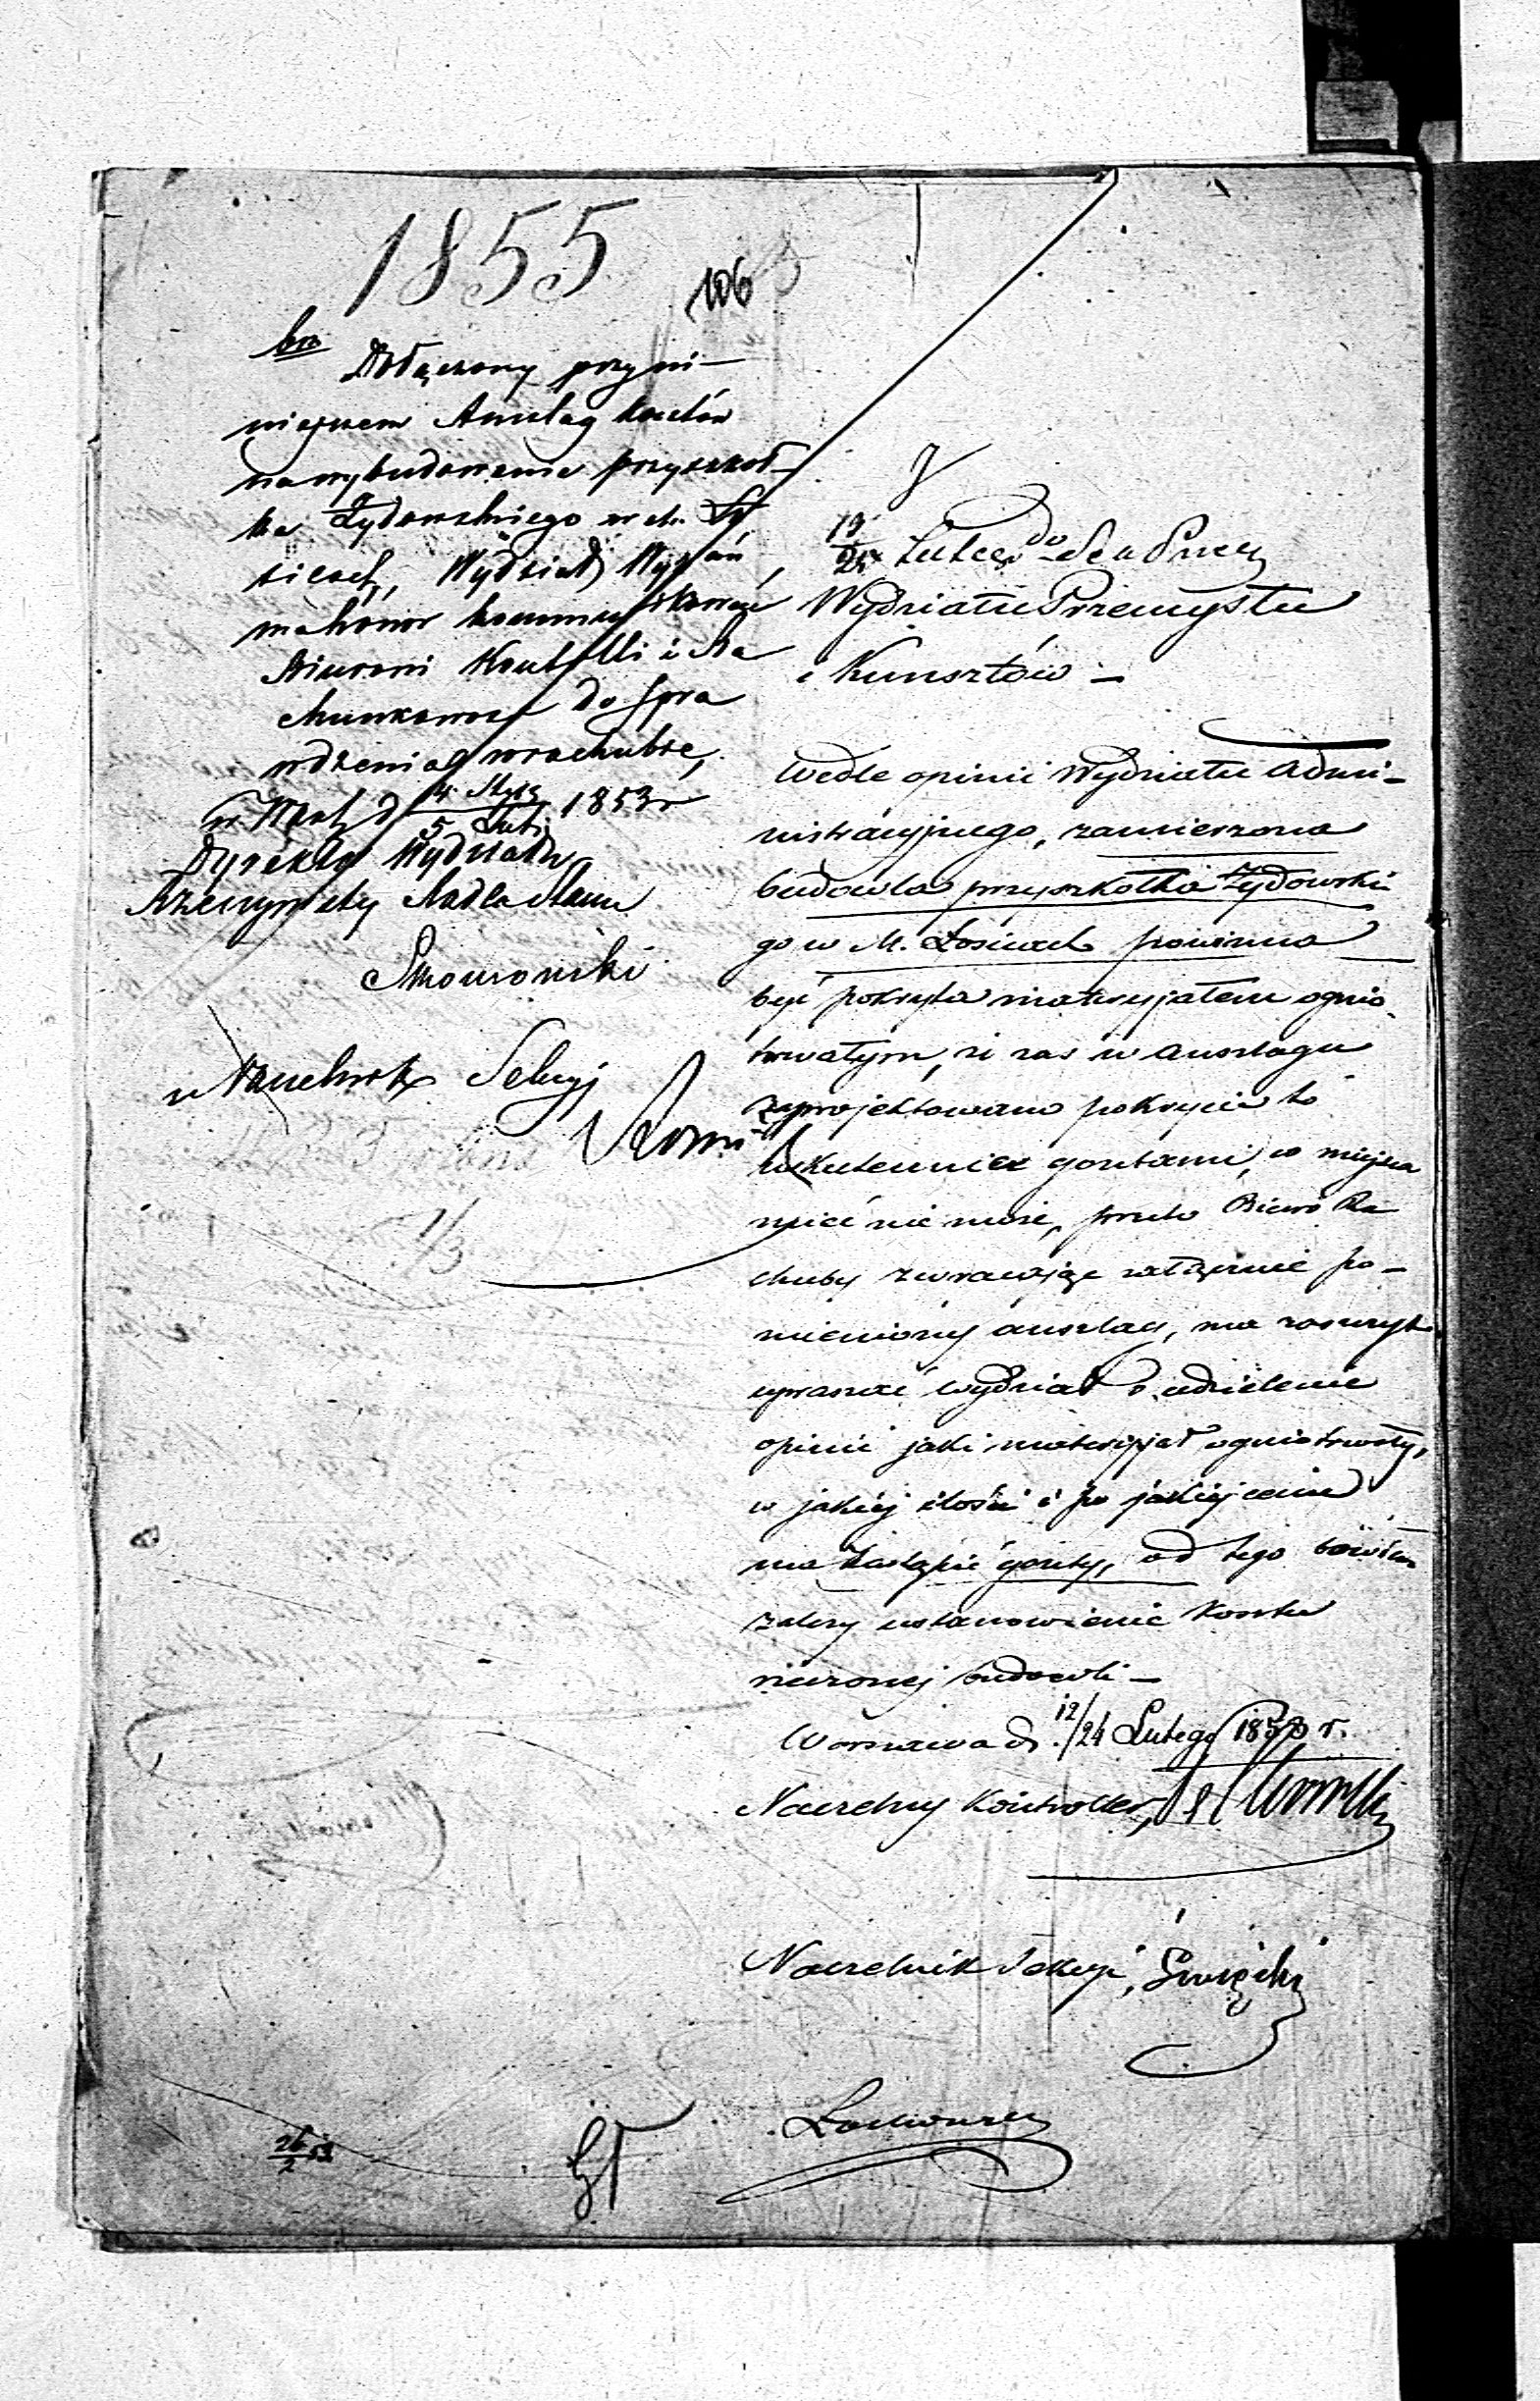 1855
106
Dołączony przy ni-
niejszem Anszlag kosztów
na wybudowanie przyszkoł-
ka Żydowskiego w m. Ło
sicach, Wydział Wyznań
ma honor kommunikować
Biurowi Kontrolli i Ra
chunkowości do spra
wdzenia w rachubie,
w Warsz. d. 1853 r
Dyrektor Wydziału
Rzeczywisty Radca Stanu
Naczelnik Sekcyi
Lutego do
Wydziału Przemysłu
i Kunsztów —
Wedle opinii Wydziału Admi-
nistracyjnego, zamierzona
budowla przyszkołka Żydowskie
go w M. Łosicach powinna
być pokryta materyjałem ognio
trwałym, że zaś w anszlagu
zaprojektowano pokrycie to
gontami, co miejsca
mieć nie może, przeto Biuro Ra
chuby zwracając załączenie po-
mieniony anszlag, ma zaszczyt
upraszać Wydział o udzielenie
opinii jaki materyjał ogniotrwały,
w jakiéj ilości i po jakiéj cenie
ma zastąpić gonty, od tego bowiem
zależy ustanowienie kosztu
rzeczonej budowli —
Warszawa d. 12/24 Lutego 1853 r.
Naczelny Kontroller,
Naczelnik Sekcyi, Święcki
26/2 53